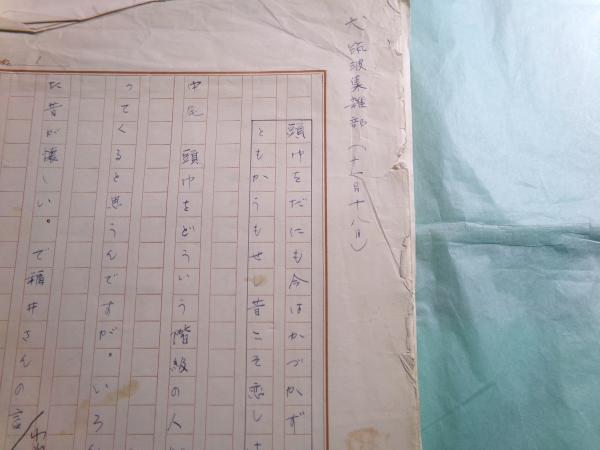 犬筑波集雑部（十一月十八日）
頭巾をだにも今はかづかず
ともかうもせし昔こそ恋し
中尾 頭巾をどういう階級の人
ってくると思うんですが。いろ
た昔が懐しい。で福井さんの言